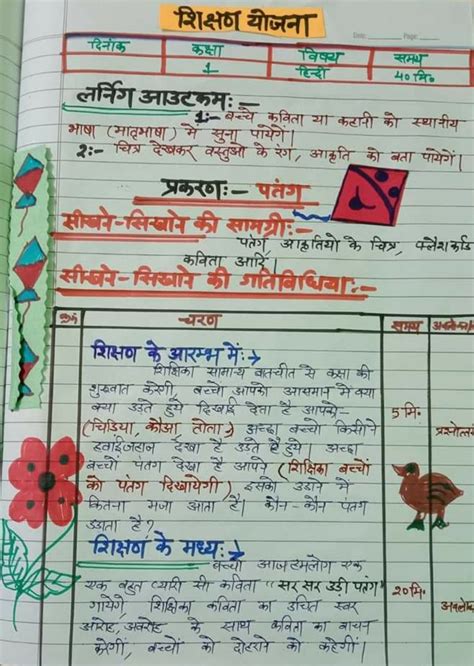 शिक्षण योजना
Date: Page:
दिनांक कक्षा विषय समय
1 हिन्दी 40 मि०
लर्निंग आउटकम:-
1:- बच्चे कविता या कहानी को स्थानीय
भाषा (मातृभाषा) में सुना पायेंगे।
2:- चित्र देखकर वस्तुओ के रंग, आकृति को बता पायेंगे।
प्रकरण:- पतंग
सीखने-सिखाने की सामग्री:-
पतंग, आकृतियो के चित्र, फ्लैश कार्ड
कविता आदि।
सीखने-सिखाने की गतिविधिया:-
क्र० चरण समय
शिक्षण के आरम्भ में:→
शिक्षिका सामान्य बातचीत से कक्षा की
शुरुवात करेगी, बच्चो आपको आसमान में क्या
क्या उड़ते हुये दिखाई देता है आपको-
(चिड़िया, कौआ, तोता) अच्छा बच्चो किसीने 5 मि.
हवाईजहाज देखा है उड़ते हुये। अच्छा
बच्चो पतंग देखा है आपने (शिक्षिका बच्चों
को पतंग दिखायेगी) इसको उड़ाने में
कितना मजा आता है। कौन-कौन पतंग
उड़ाता है?
शिक्षण के मध्य:→
बच्चो आज हमलोग एक
एक बहुत प्यारी सी कविता "सर सर उड़ी पतंग" 20 मि.
गायेंगे, शिक्षिका कविता का उचित स्वर
आरोह, अवरोह के साथ कविता का वाचन
करेंगी, बच्चों को दोहराने को कहेंगी।